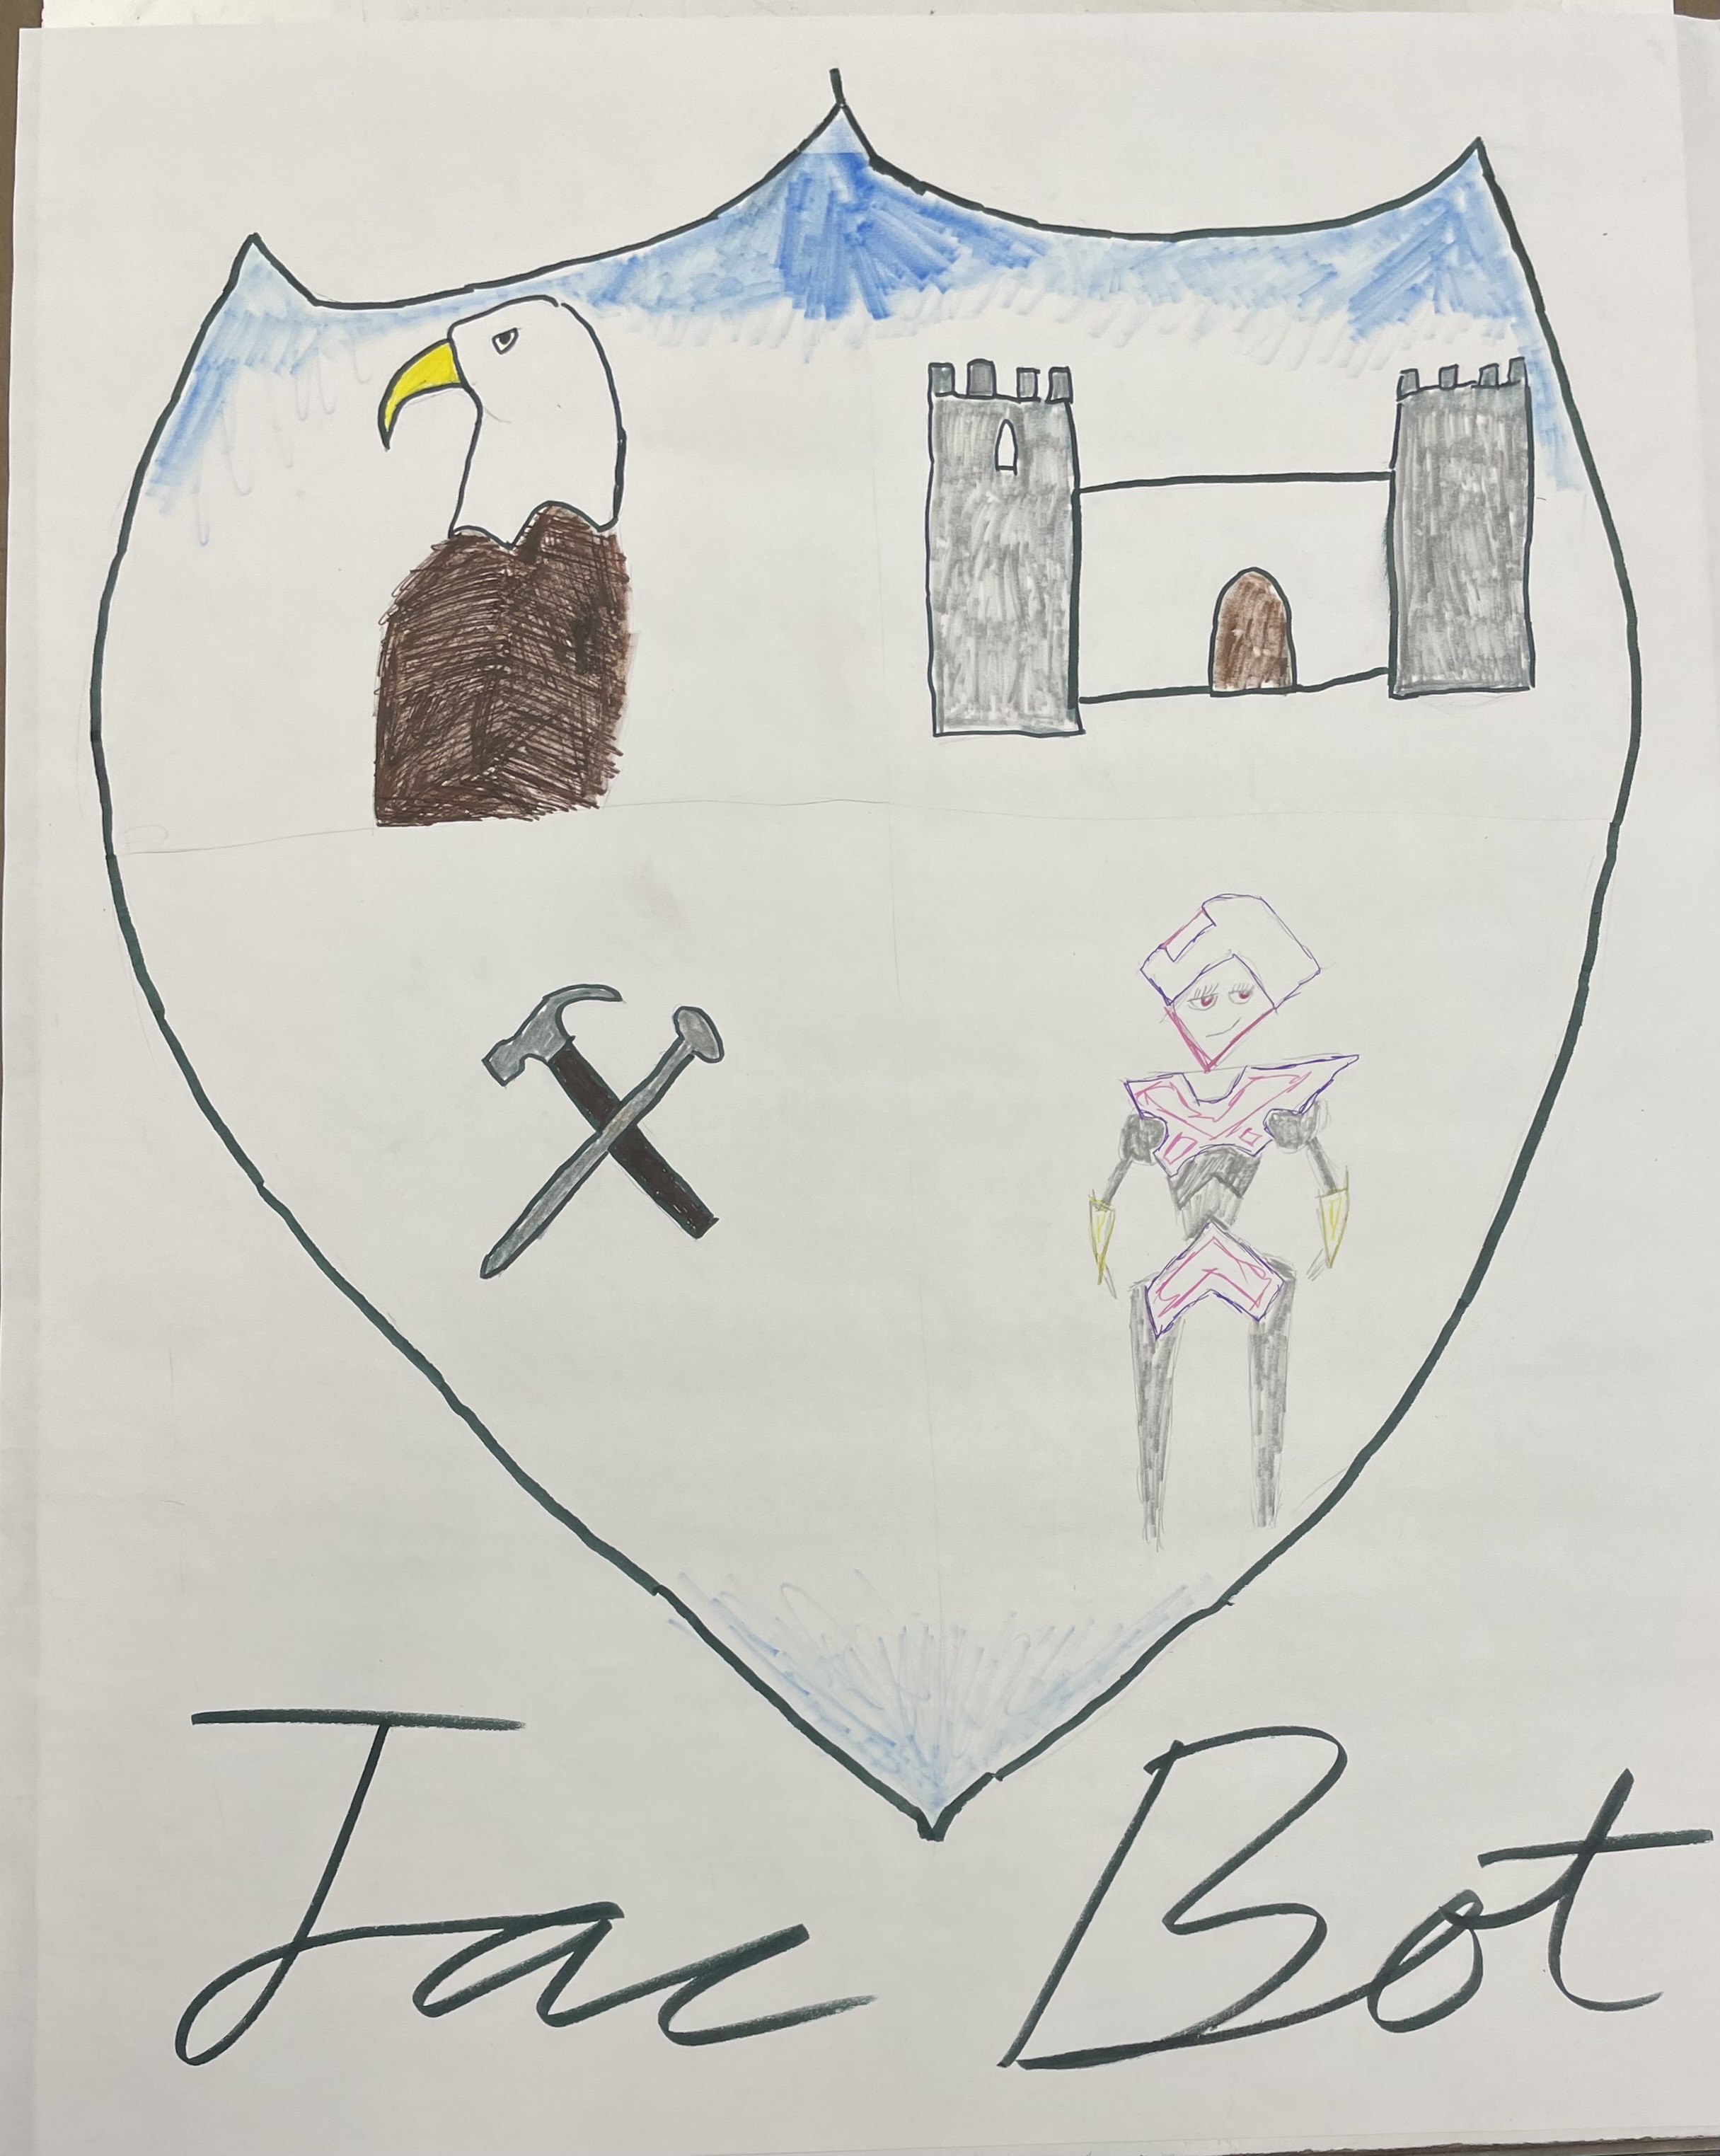 Jac Bot